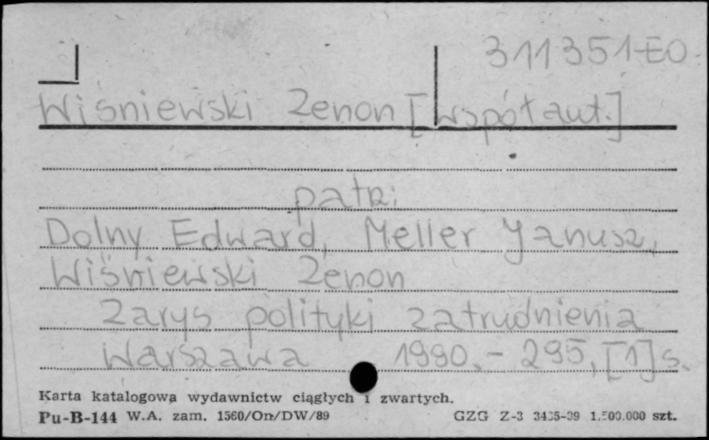 311351-EO
Wiśniewski Zenon [współaut.]
patrz:
Dolny Edward, Meller Janusz,
Wiśniewski Zenon
Zarys polityki zatrudnienia
Warszawa 1990. - 295, [1] s.
Karta katalogowa wydawnictw ciągłych i zwartych.
Pu-B-144 W.A. zam. 1560/On/DW/89 GZG Z-3 3435-89 1.500.000 szt.